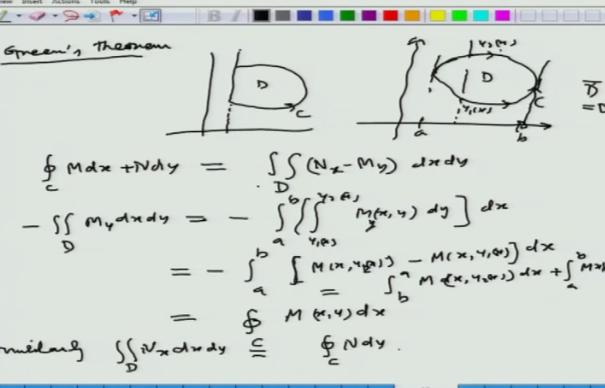 View Insert Actions Tools Help
B I
Green's Theorem
D
C
y₂(x)
D
C
y₁(x)
a
b
D̅
∮_C Mdx + Ndy = ∬_D (Nx - My) dxdy
- ∬_D My dxdy = - ∫_a^b [∫_{y₁(x)}^{y₂(x)} M_y(x, y) dy] dx
= - ∫_a^b [M(x, y₂(x)) - M(x, y₁(x))] dx
= ∫_b^a M(x, y₂(x)) dx + ∫_a^b M(x
= ∮_C M(x, y) dx
∬_D Nx dxdy = ∮_C Ndy.